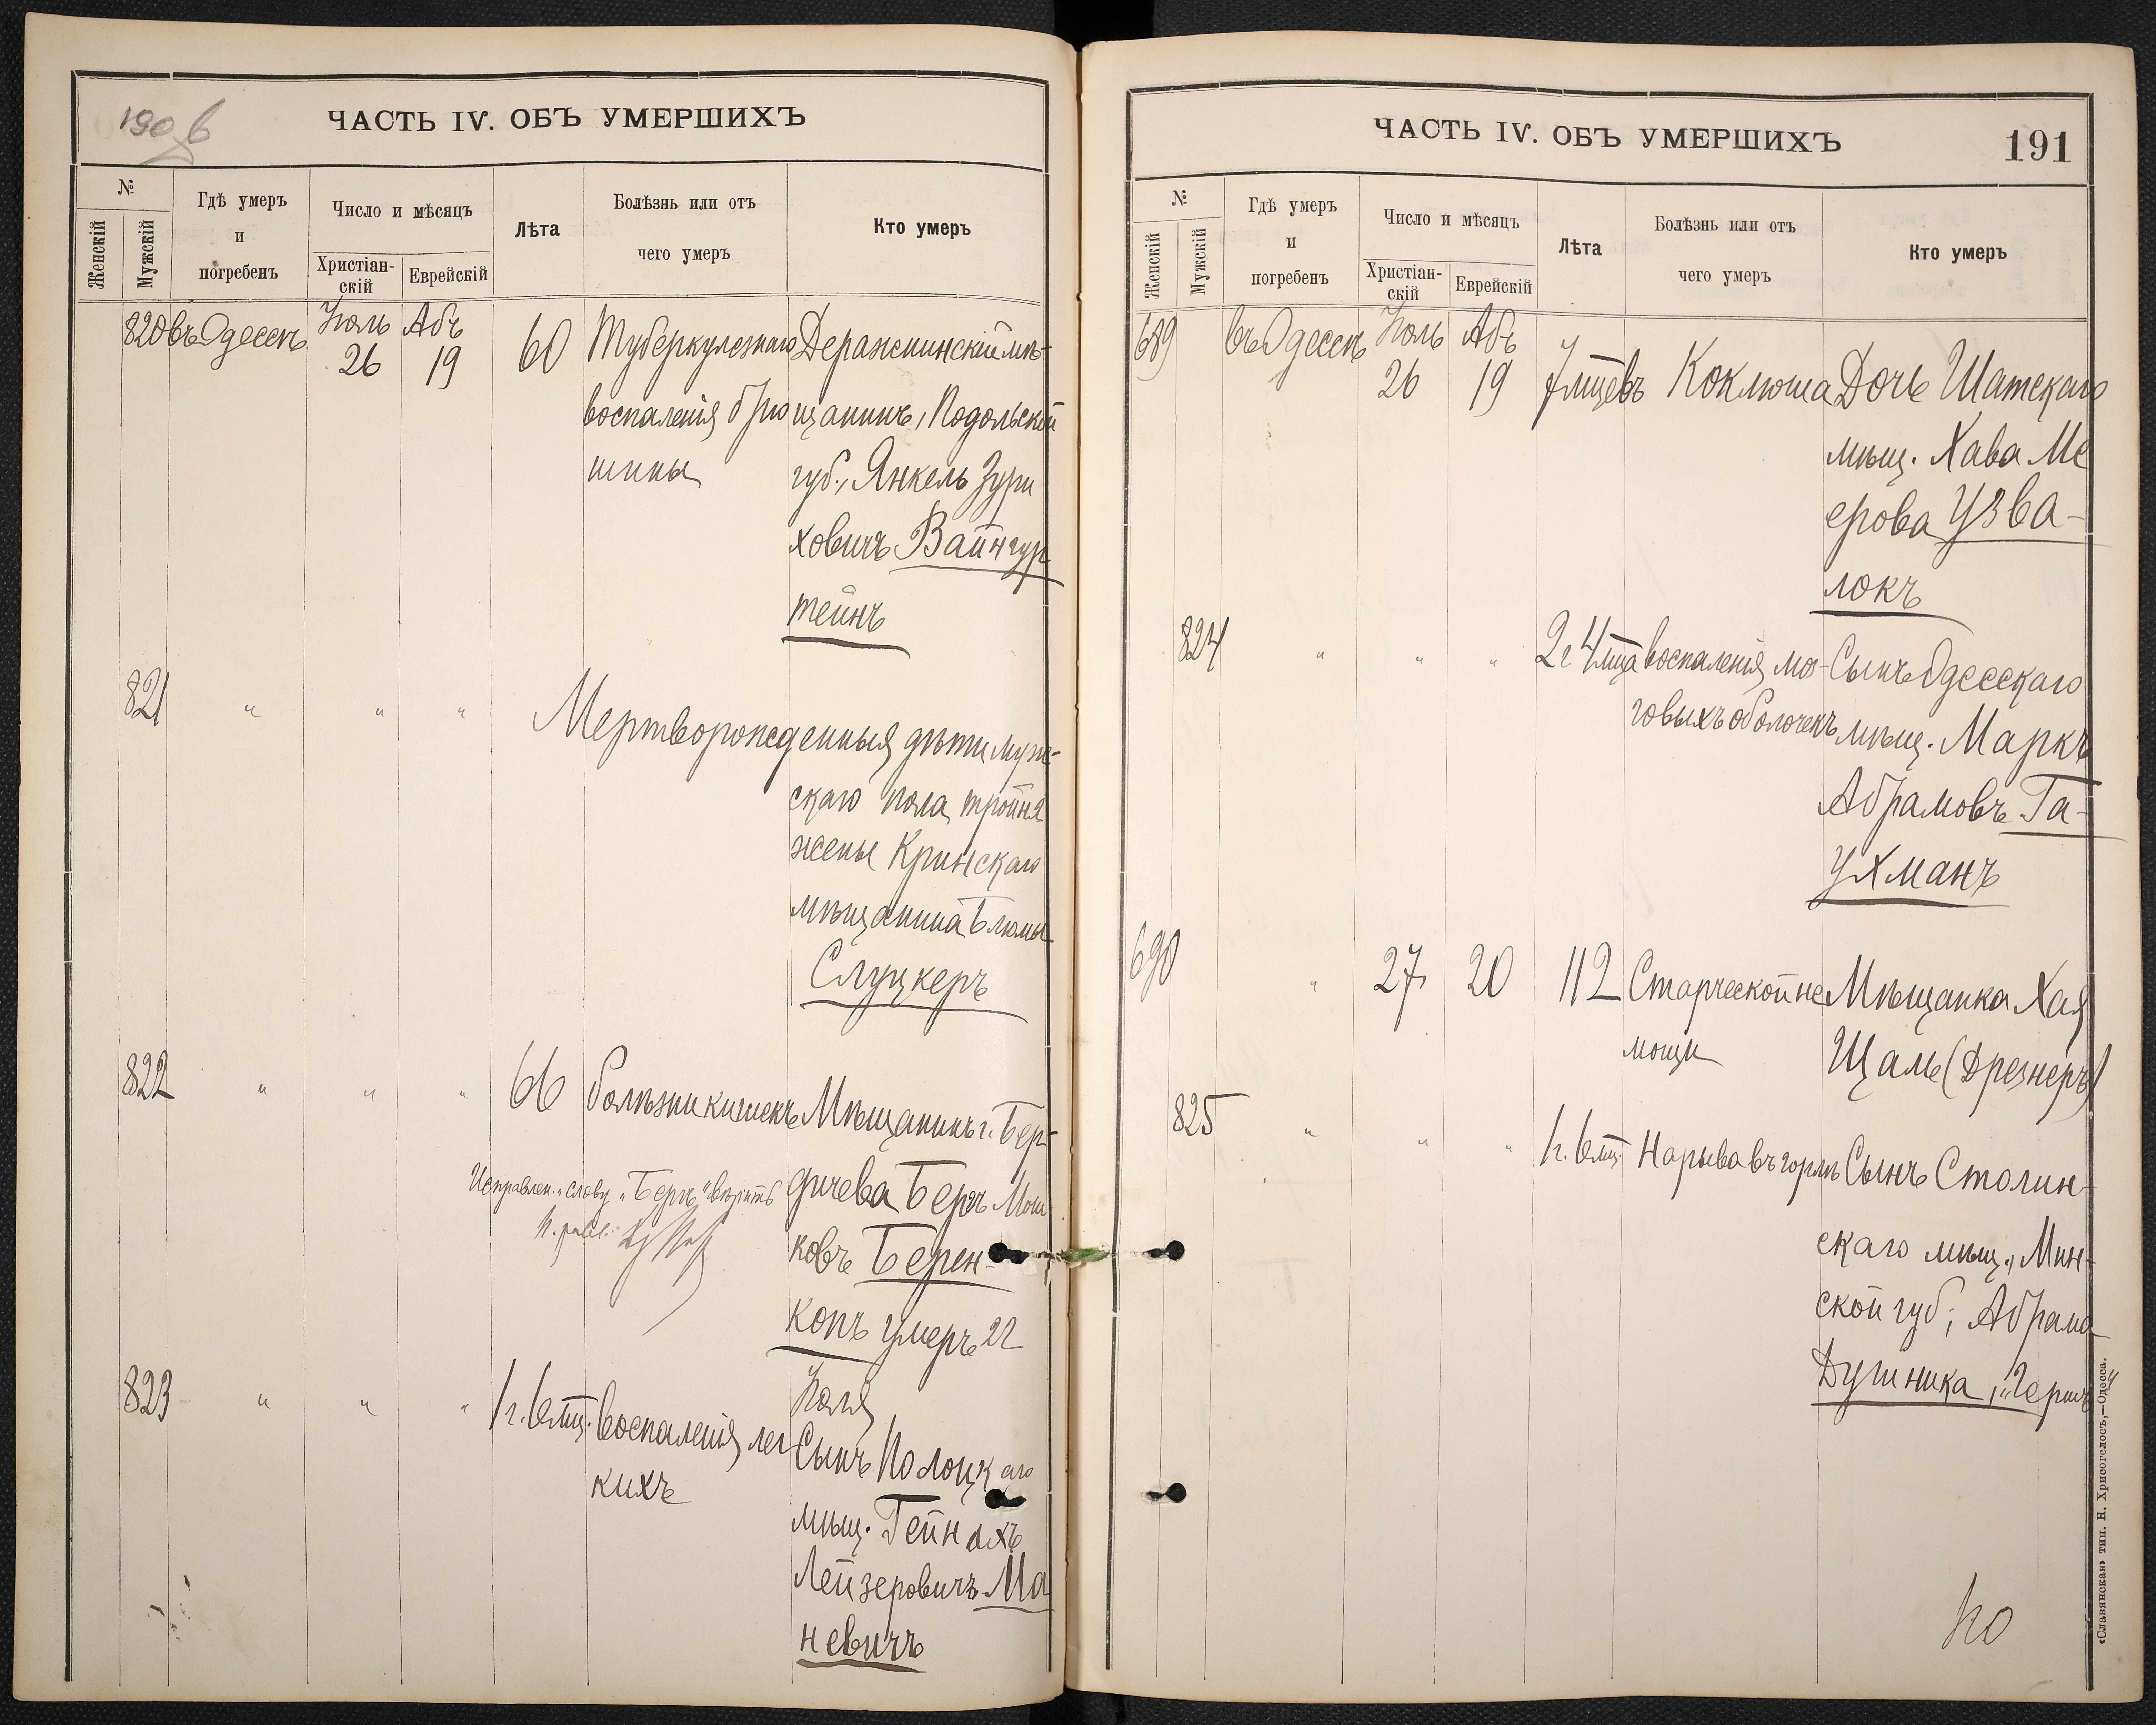 190 б
ЧАСТЬ IV. ОБЪ УМЕРШИХЪ
№
Женскій
Мужскій
Гдѣ умеръ
и
погребенъ
Число и мѣсяцъ
Христіан-
скій
Еврейскій
Лѣта
Болѣзнь или отъ
чего умеръ
Кто умеръ
820 въ Одессѣ Іюль 26 Абъ 19 60 Туберкулезнаго Деражнинскій мѣ-
воспаленія брю щанинъ, Подольской
шины губ., Янкель Зури
ховичъ Вайнгур
тейнъ
821 " " " Мертворожденныя дѣти муж-
скаго пола, тройня
жены Кринскаго
мѣщанина Блюмы
Слуцкеръ
822 " " " 66 болѣзни кишекъ Мѣщанинъ г. Бер-
дичева Беръ Мош
ковъ Берен-
копъ умеръ 22
Іюля
Исправлен. слову „Беръ" вѣрить
823 " " " 1 г. 6 мц. воспаленія лег Сынъ Полоцкаго
кихъ мѣщ. Гейнахъ
Лейзеровичъ Ма
невичъ
ЧАСТЬ IV. ОБЪ УМЕРШИХЪ
191
№
Женскій
Мужскій
Гдѣ умеръ
и
погребенъ
Число и мѣсяцъ
Христіан-
скій
Еврейскій
Лѣта
Болѣзнь или отъ
чего умеръ
Кто умеръ
689 въ Одессѣ Іюль 26 Абъ 19 7 мцевъ Коклюша Дочь Шатскаго
мѣщ. Хава Ме
ерова Узва-
локъ
824 " " " 2 г 4 мца воспаленія моз- Сынъ Одесскаго
говыхъ оболочекъ мѣщ. Маркъ
Абрамовъ Га-
ухманъ
690 " 27 20 112 Старческой не Мѣщанка Хая
мощи Щаль (Дрезнеръ)
825 " " " 1 г. 6 мц. Нарыва въ горлѣ Сынъ Столин-
скаго мѣщ., Мин-
ской губ., Абрама
Душника, „Гершъ"
«Славянская» тип. Н. Хрисогелосъ,—Одесса.